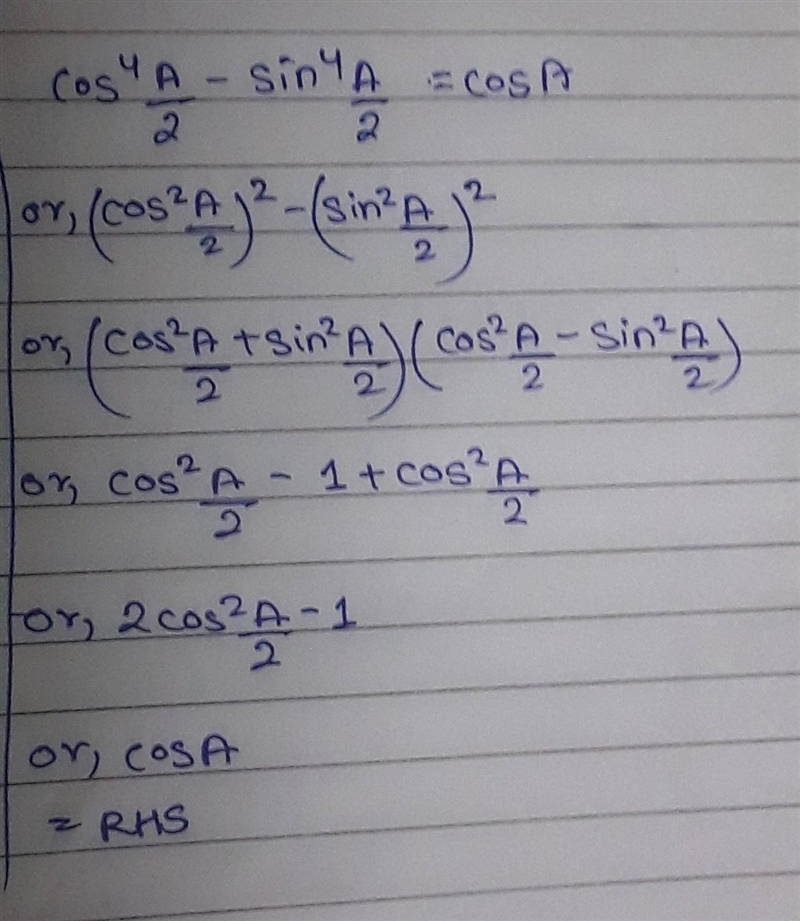 cos⁴A/2 - sin⁴A/2 = cosA
or, (cos²A/2)² - (sin²A/2)²
or, (cos²A/2 + sin²A/2)(cos²A/2 - sin²A/2)
or, cos²A/2 - 1 + cos²A/2
or, 2cos²A/2 - 1
or, cosA
= RHS